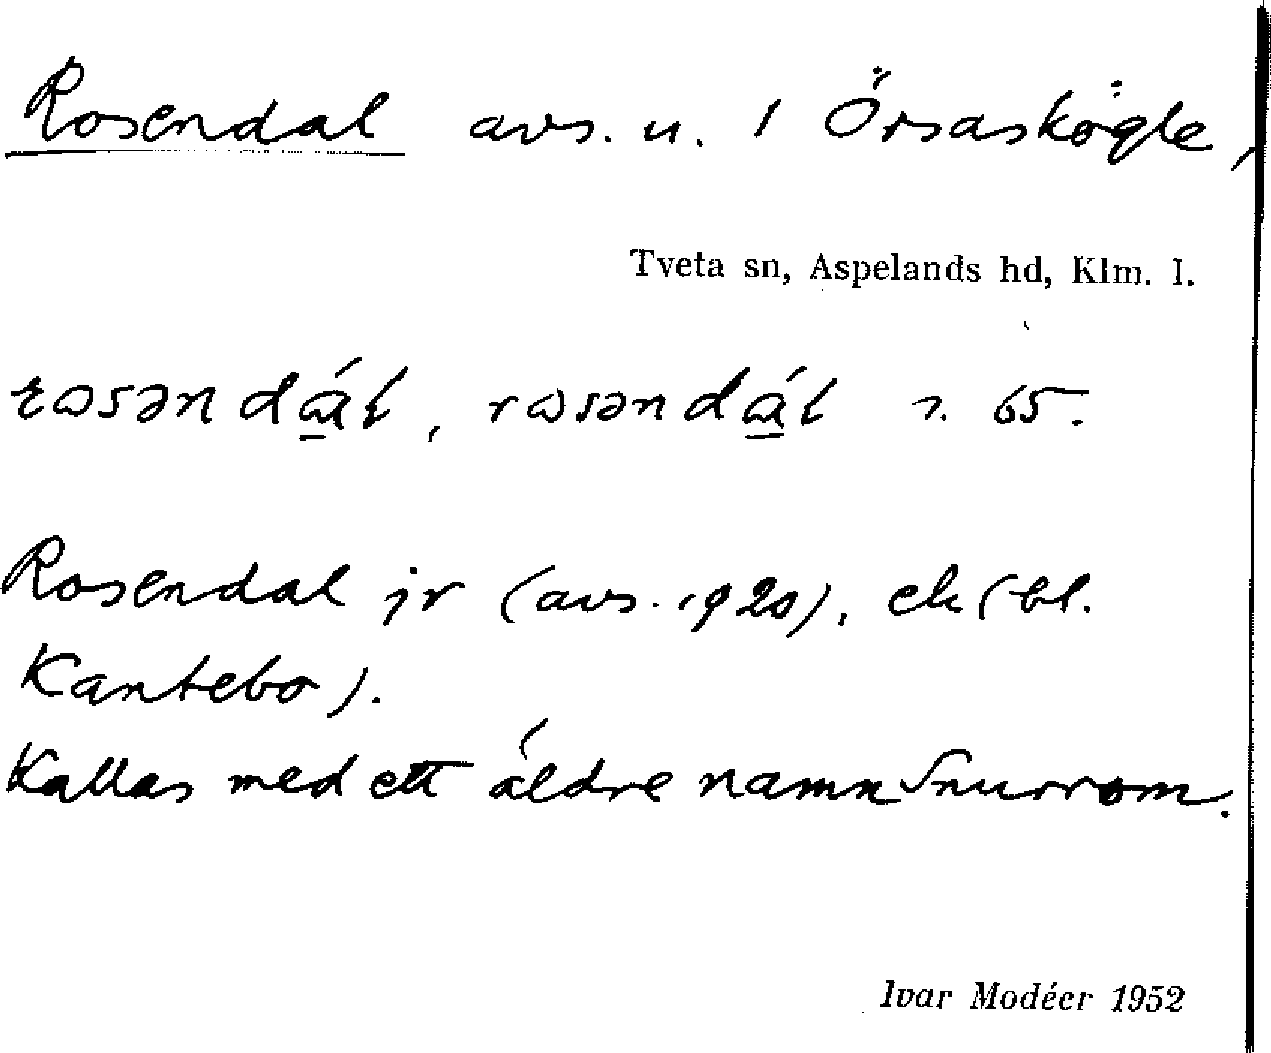 Rosendal avs. u. 1 Örsaskögle,
Tveta sn, Aspelands hd, Klm. l.
rosəndál, rosəndál 65.
Rosendal jr (avs. 1920), ek (bl.
Kantebo).
Kallas med ett äldre namn Snurrom.
Ivar Modéer 1952